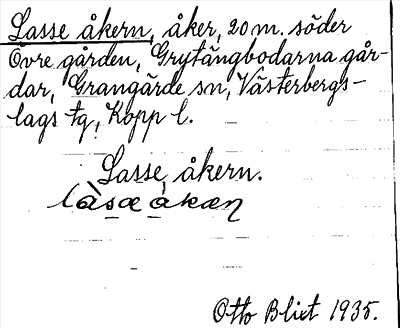 Lasse åkern, åker, 20 m. söder
Övre gården, Grytängbodarna går-
dar, Grangärde sn, Västerbergs-
lags tg, Kopp l.
Lasse åkern.
làsæ åkæɳ
Otto Blixt 1935.